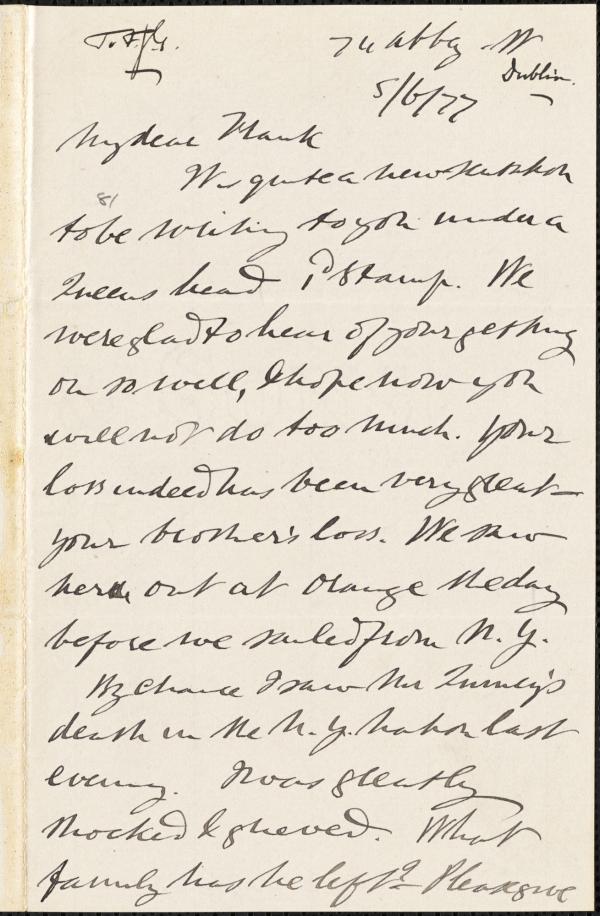 74 Abbey St W
Dublin.
5/6/77
My dear Frank
It is quite a new sensation
81
to be writing to you under a
Queens head 1d Stamp. We
were glad to hear of your getting
on so well, & hope now you
will not do too much. Your
loss indeed has been very great –
your brother's loss. We saw
her out at Orange the day
before we sailed from N. Y.
By chance I saw Mr Quincy's
death in the N. Y. Nation last
evening. I was greatly
shocked & grieved. What
family has he left? Please give